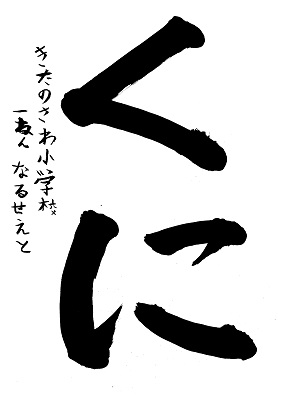 くに
きたのさわ小学校
一年 なるせえと